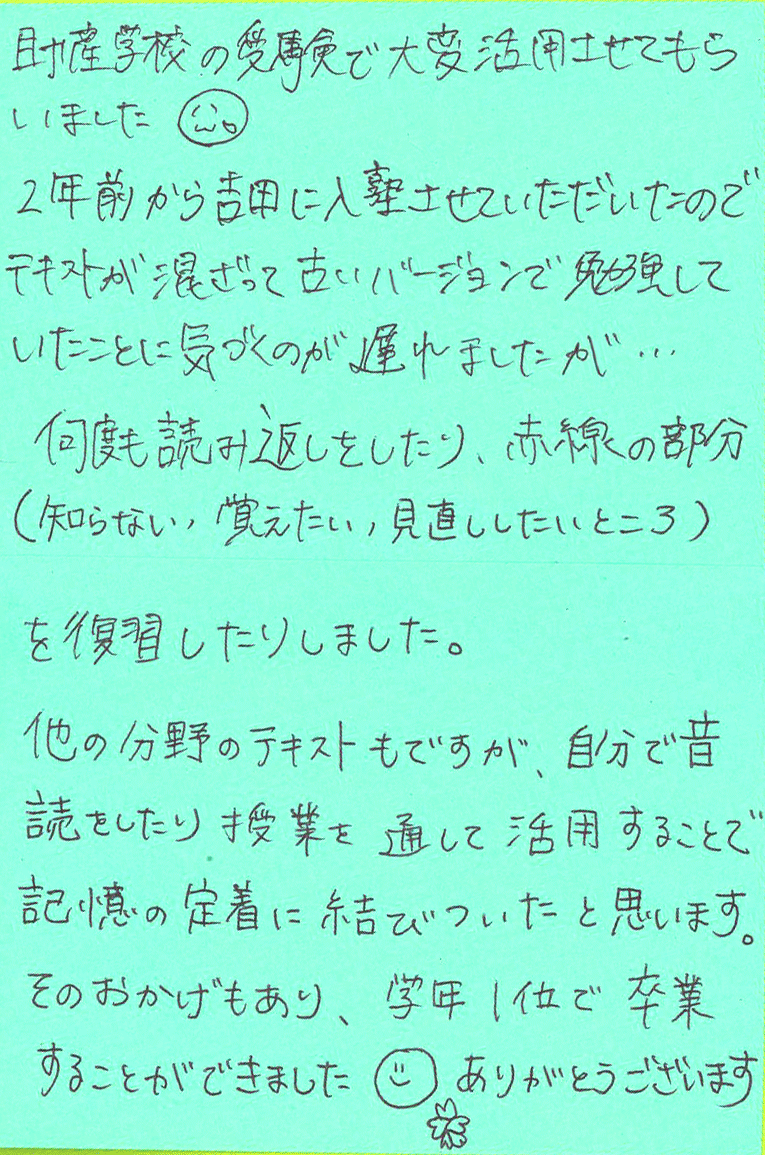 助産学校の受験で大変活用させてもら
いました
2年前から吉田に入塾させていただいたので
テキストが混ざって古いバージョンで勉強して
いたことに気づくのが遅れましたが…
何度も読み返しをしたり、赤線の部分
(知らない,覚えたい,見直ししたいところ)
を復習したりしました。
他の分野のテキストもですが、自分で音
読をしたり授業を通して活用することで
記憶の定着に結びついたと思います。
そのおかげもあり、学年1位で卒業
することができました ありがとうございます